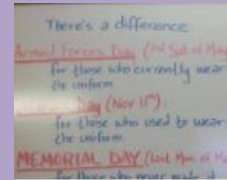 There's a difference.
Armed Forces Day (3rd Sat of May)
for those who currently wear
the uniform.
Day (Nov 11th):
for those who used to wear
the uniform.
MEMORIAL DAY (last Mon of May
for those who never made it